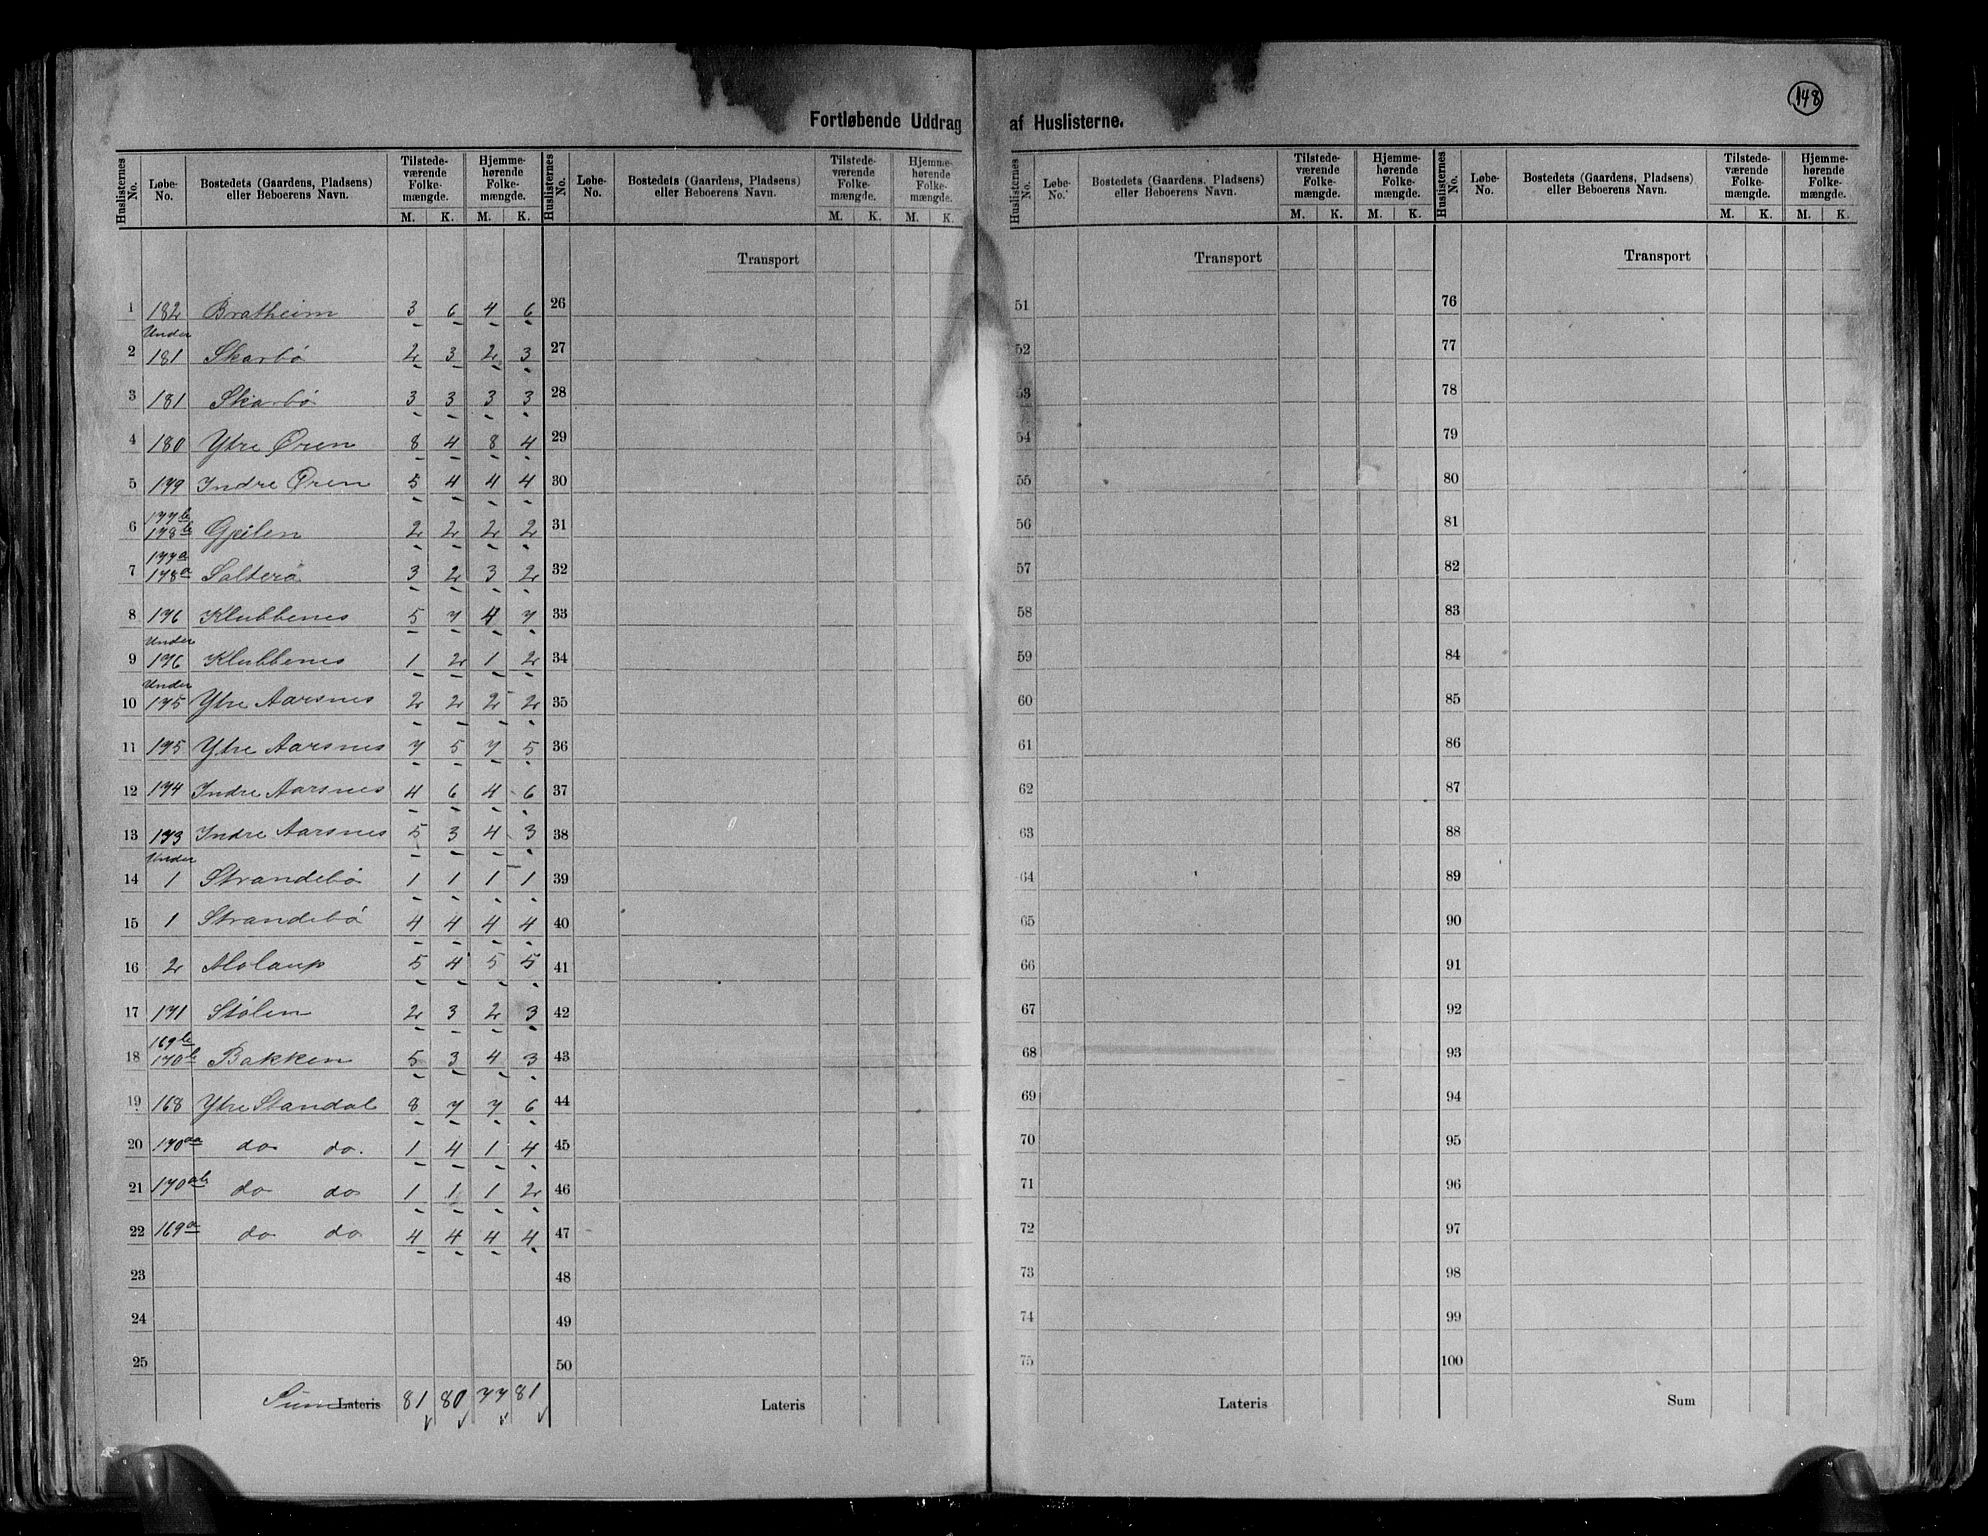 148
Fortløbende Uddrag af Huslisterne.
Huslisternes No. Løbe-No. Bostedets (Gaardens, Pladsens) eller Beboerens Navn. Tilstedeværende Folkemængde. M. K. Hjemmehørende Folkemængde. M. K.
Huslisternes No. Løbe-No. Bostedets (Gaardens, Pladsens) eller Beboerens Navn. Tilstedeværende Folkemængde. M. K. Hjemmehørende Folkemængde. M. K.
Huslisternes No. Løbe-No. Bostedets (Gaardens, Pladsens) eller Beboerens Navn. Tilstedeværende Folkemængde. M. K. Hjemmehørende Folkemængde. M. K.
Huslisternes No. Løbe-No. Bostedets (Gaardens, Pladsens) eller Beboerens Navn. Tilstedeværende Folkemængde. M. K. Hjemmehørende Folkemængde. M. K.
Transport Transport Transport
1 182 Bratheim 3 6 4 6 26 51 76
2 Under 181 Skarbö 2 3 2 3 27 52 77
3 181 Skarbö 3 3 3 3 28 53 78
4 180 Ytre Øren 8 4 8 4 29 54 79
5 179 Indre Øren 5 4 4 4 30 55 80
6 177b 178b Gjeilen 2 2 2 2 31 56 81
7 177a 178a Salterø 3 2 3 2 32 57 82
8 176 Klubbenes 5 7 4 7 33 58 83
9 Under 176 Klubbenes 1 2 1 2 34 59 84
10 Under 175 Ytre Aarsnes 2 2 2 2 35 60 85
11 175 Ytre Aarsnes 7 5 7 5 36 61 86
12 174 Indre Aarsnes 4 6 4 6 37 62 87
13 173 Indre Aarsnes 5 3 4 3 38 63 88
14 Under 1 Strandebö 1 1 1 1 39 64 89
15 1 Strandebö 4 4 4 4 40 65 90
16 2 Molaup 5 4 5 5 41 66 91
17 171 Stölen 2 3 2 3 42 67 92
18 169b 170b Bakken 5 3 4 3 43 68 93
19 168 Ytre Standal 8 7 7 6 44 69 94
20 170aa do do. 1 4 1 4 45 70 95
21 170ab do do 1 1 1 2 46 71 96
22 169a do do 4 4 4 4 47 72 97
23 48 73 98
24 49 74 99
25 50 75 100
Sum Lateris 81 80 77 81 Lateris Lateris Sum